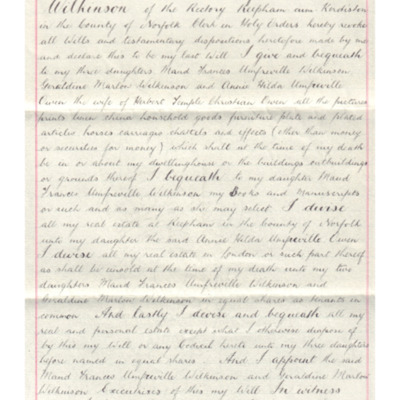 Wilkinson of the Rectory Reepham cum Kerdiston
in the County of Norfolk Clerk in Holy Orders hereby revoke
all Wills and testamentary dispositions heretofore made by me
and declare this to be my last Will I give and bequeath
to my three daughters Maud Frances Umfreville Wilkinson
Geraldine Marlow Wilkinson and Annie Hilda Umfreville
Owen the wife of Herbert Temple Christian Owen all the pictures
prints linen china household goods furniture plate and plated
articles horses carriages chattels and effects (other than money
or securities for money) which shall at the time of my death
be in or about my dwellinghouse or the buildings outbuildings
or grounds thereof I bequeath to my daughter Maud
Frances Umfreville Wilkinson my Books and Manuscripts
or such and as many as she may select I devise
all my real estate at Reepham in the County of Norfolk
unto my daughter the said Annie Hilda Umfreville Owen
I devise all my real estate in London or such part thereof
as shall be unsold at the time of my death unto my two
daughters Maud Frances Umfreville Wilkinson and
Geraldine Marlow Wilkinson in equal shares as tenants in
common And lastly I devise and bequeath all my
real and personal estate except what I otherwise dispose of
by this my Will or any Codicil hereto unto my three daughters
before named in equal shares And I appoint the said
Maud Frances Umfreville Wilkinson and Geraldine Marlow
Wilkinson Executrices of this my Will In witness